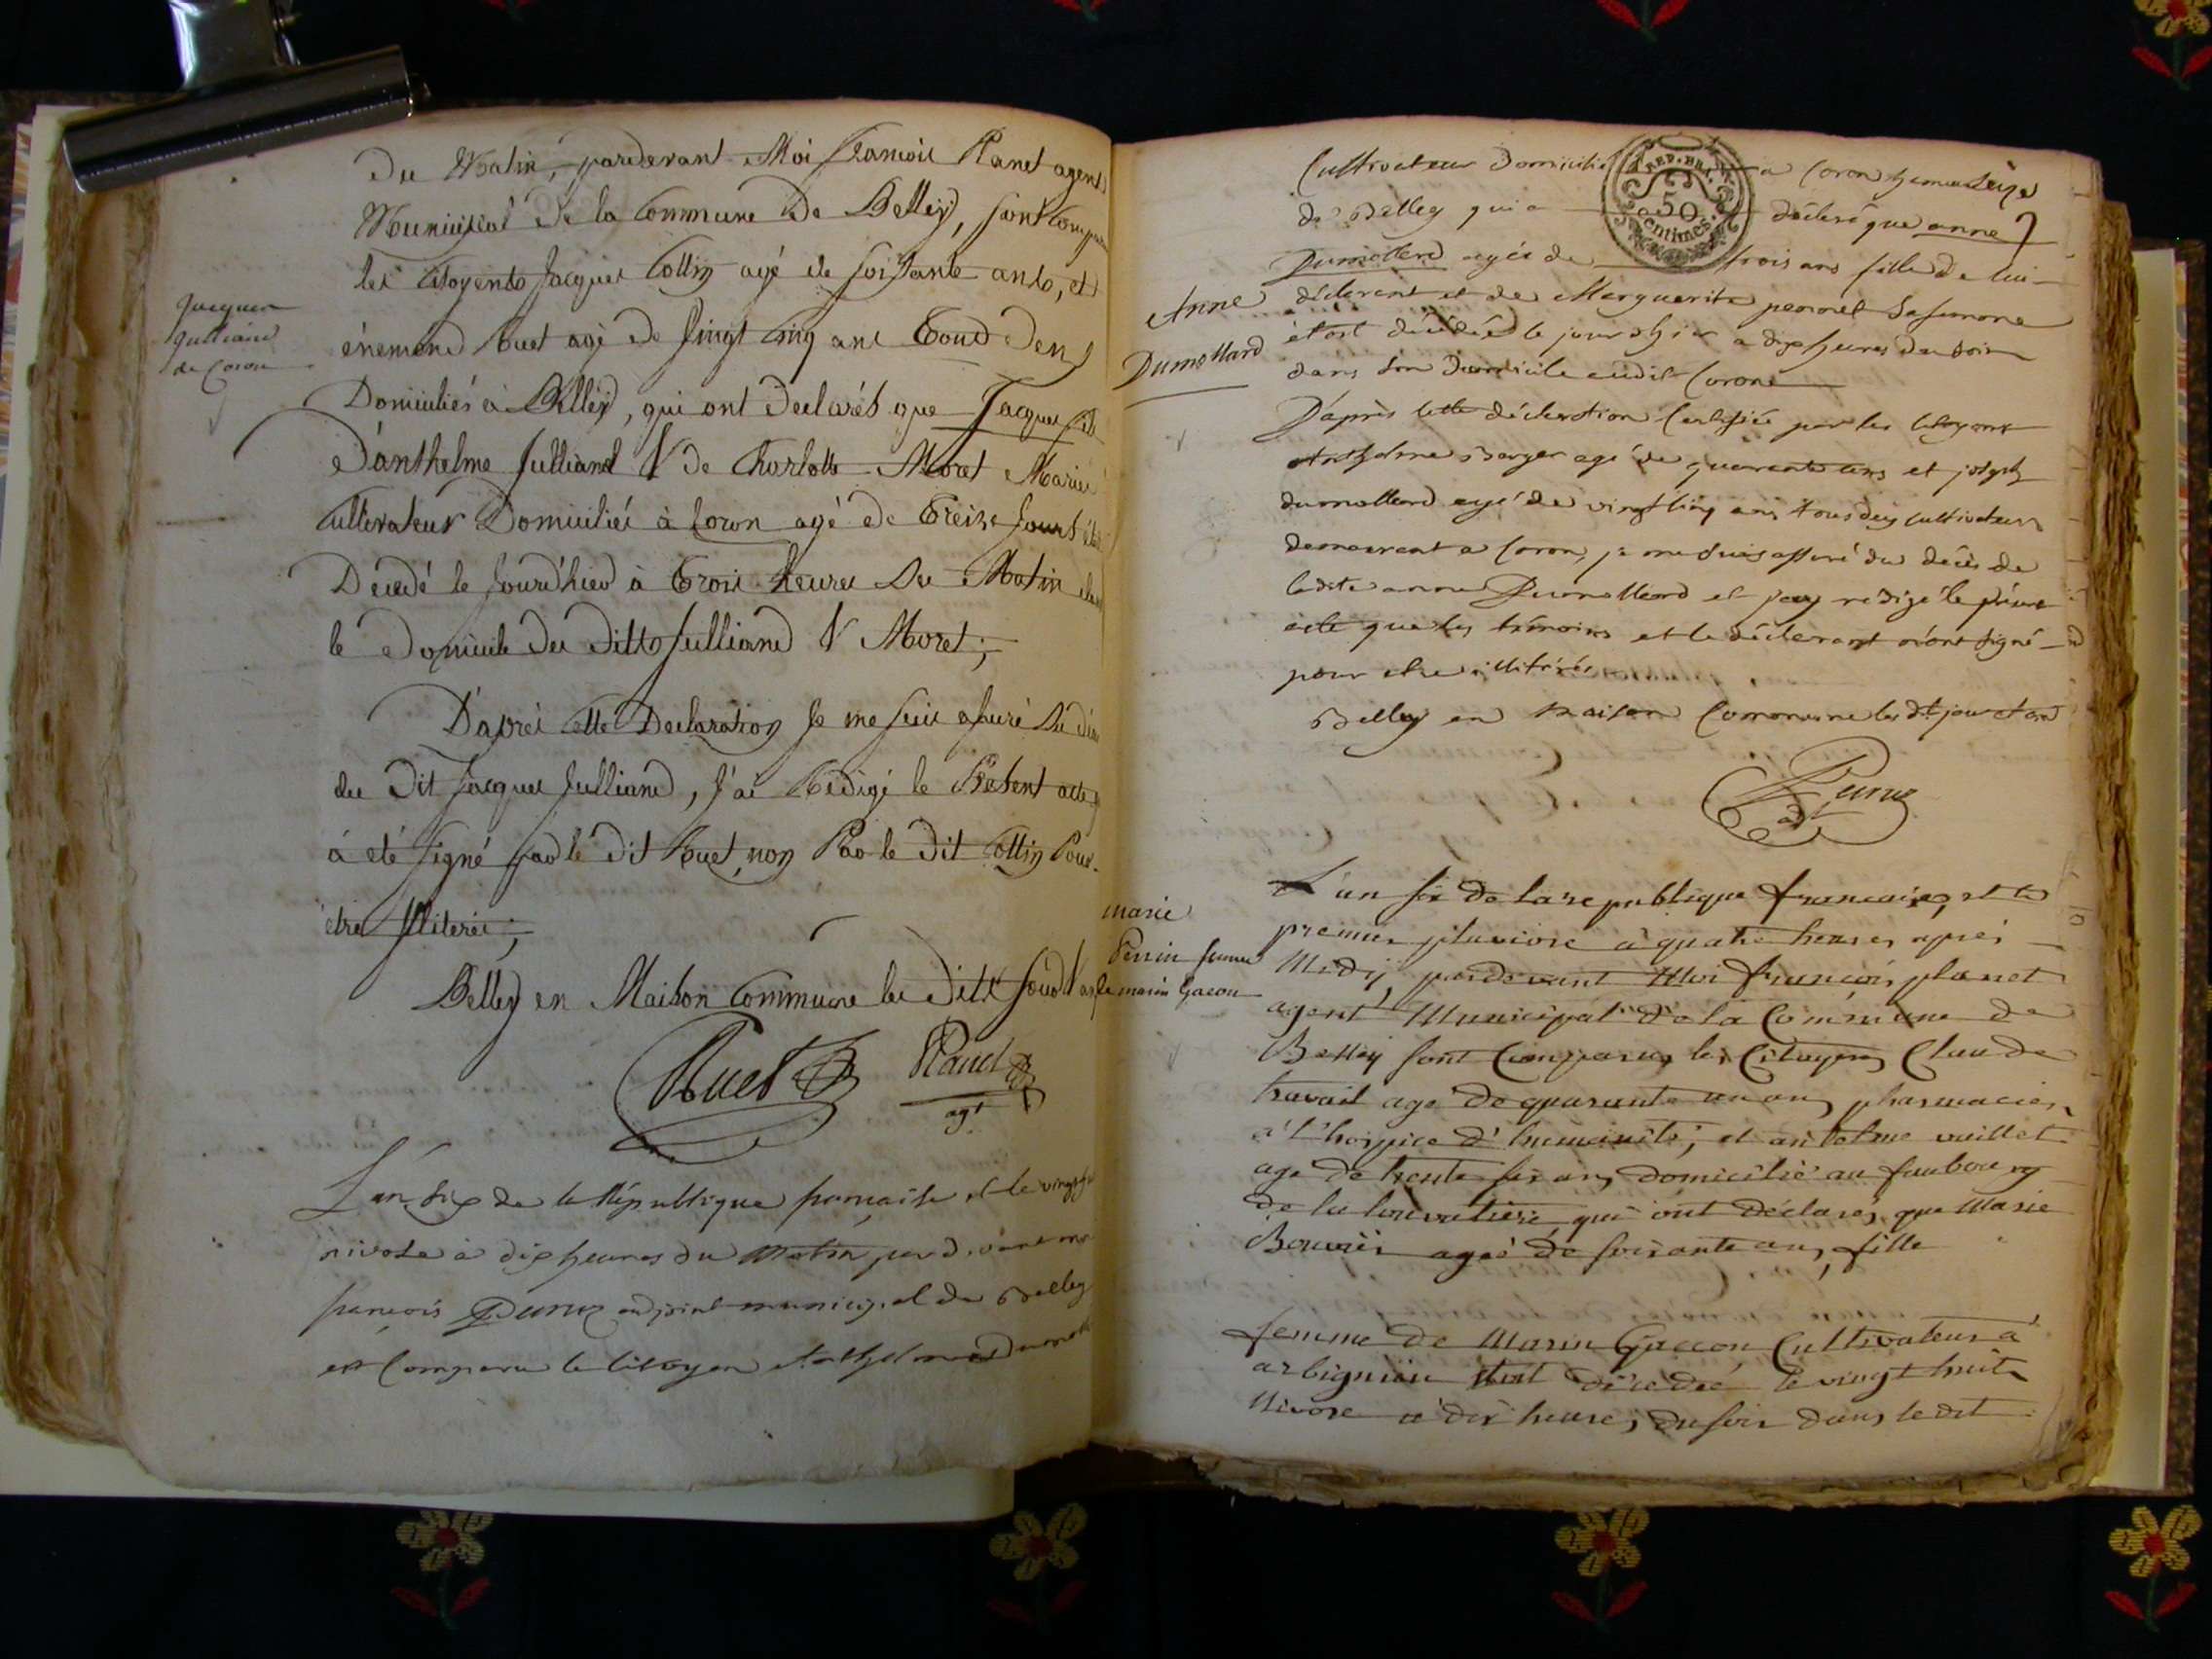 Du Matin, pardevant Moi François Planet agent
Municipal de la Commune de Belley, sont Compa
les Citoyents Jacques Collin agé de soissante ants, et
énemond Ruet agé de Vingt Cinq ans Tous Deux
Jacques
Julliand
de Coron
Domiciliés à Belley, qui ont Declarés que Jacques fils
D'anthelme Julliand & de Charlotte Moret Mariés
Cultivateur Domiciliés à Coron agé de Treize Jours étoit
Décedé le Jourd'hier à Trois heures Du Matin dans
le Domicile du Ditts Julliand & Moret;
D'aprés cette Declaration Je me suis assuré Du décé
du Dit Jacques Julliand, J'ai Redigé le Present acte q
à eté signé par le dit Ruet, non Par le Dit Collin Pour
être Iliteréi;
Belley en Maison Commune les Ditts Jour & an
Ruet Planet
agt
L'an six de la République francaise et le vingt
nivose à dix heures du Matin, pardevant moi
francois adjoint municipal de Belley
est Comparu le Citoyen Anthelme Dumoll
REP. FRA.
50
centimes.
Cultivateur Domicilié a Coron
de Belley qui a déclaré que anne
Dumollard agée de trois ans fille de lui
Anne
Dumollard
déclarant et de Marguerite sa femme
étoit décédée le jour d'hier a dix heures du soir
dans son Domicile audit Coron
D'après cette déclaration Certifiée par les Citoyens
Anthelme Berger agé de quarante ans et joseph
dumollard agé de vingt cinq ans tous deux cultivateurs
demeurant a Coron, je me suis assuré du décès de
ladite anne Dumollard et j'ay redigé le présent
acte que les témoins et le déclarant n'ont signé
pour etre illitérés
Belley en maison Commune les dt jour et an
marie
Perrin femme
de marin Gacon
L'an six de la republique francaise, et le
premier pluviose à quatre heures aprés
Midy, pardevant Moi François planet
agent Municipal de la Commune de
Belley sont Comparus les Citoyens Claude
travail agé de quarante un ans, pharmacien
à l'hospice d'humanité; et antelme vuillet
agé de trente six ans, domicilié au faubourg
de la louvatiere, qui ont déclarés que Marie
agée de soixante ans, fille
femme de Marin Gaccon Cultivateur à
arbignieu etoit décédée le vingt huit
Nivose à dix heures du soir dans le dit